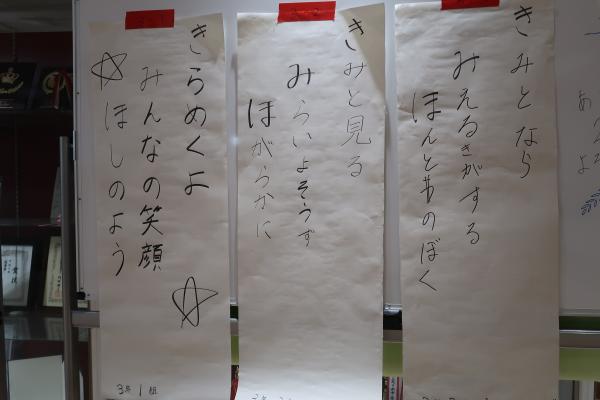 きみとなら
みえるきがする
ほんとものぼく
きみと見る
みらいよそうず
ほがらかに
きらめくよ
みんなの笑顔
ほしのよう
3年1組